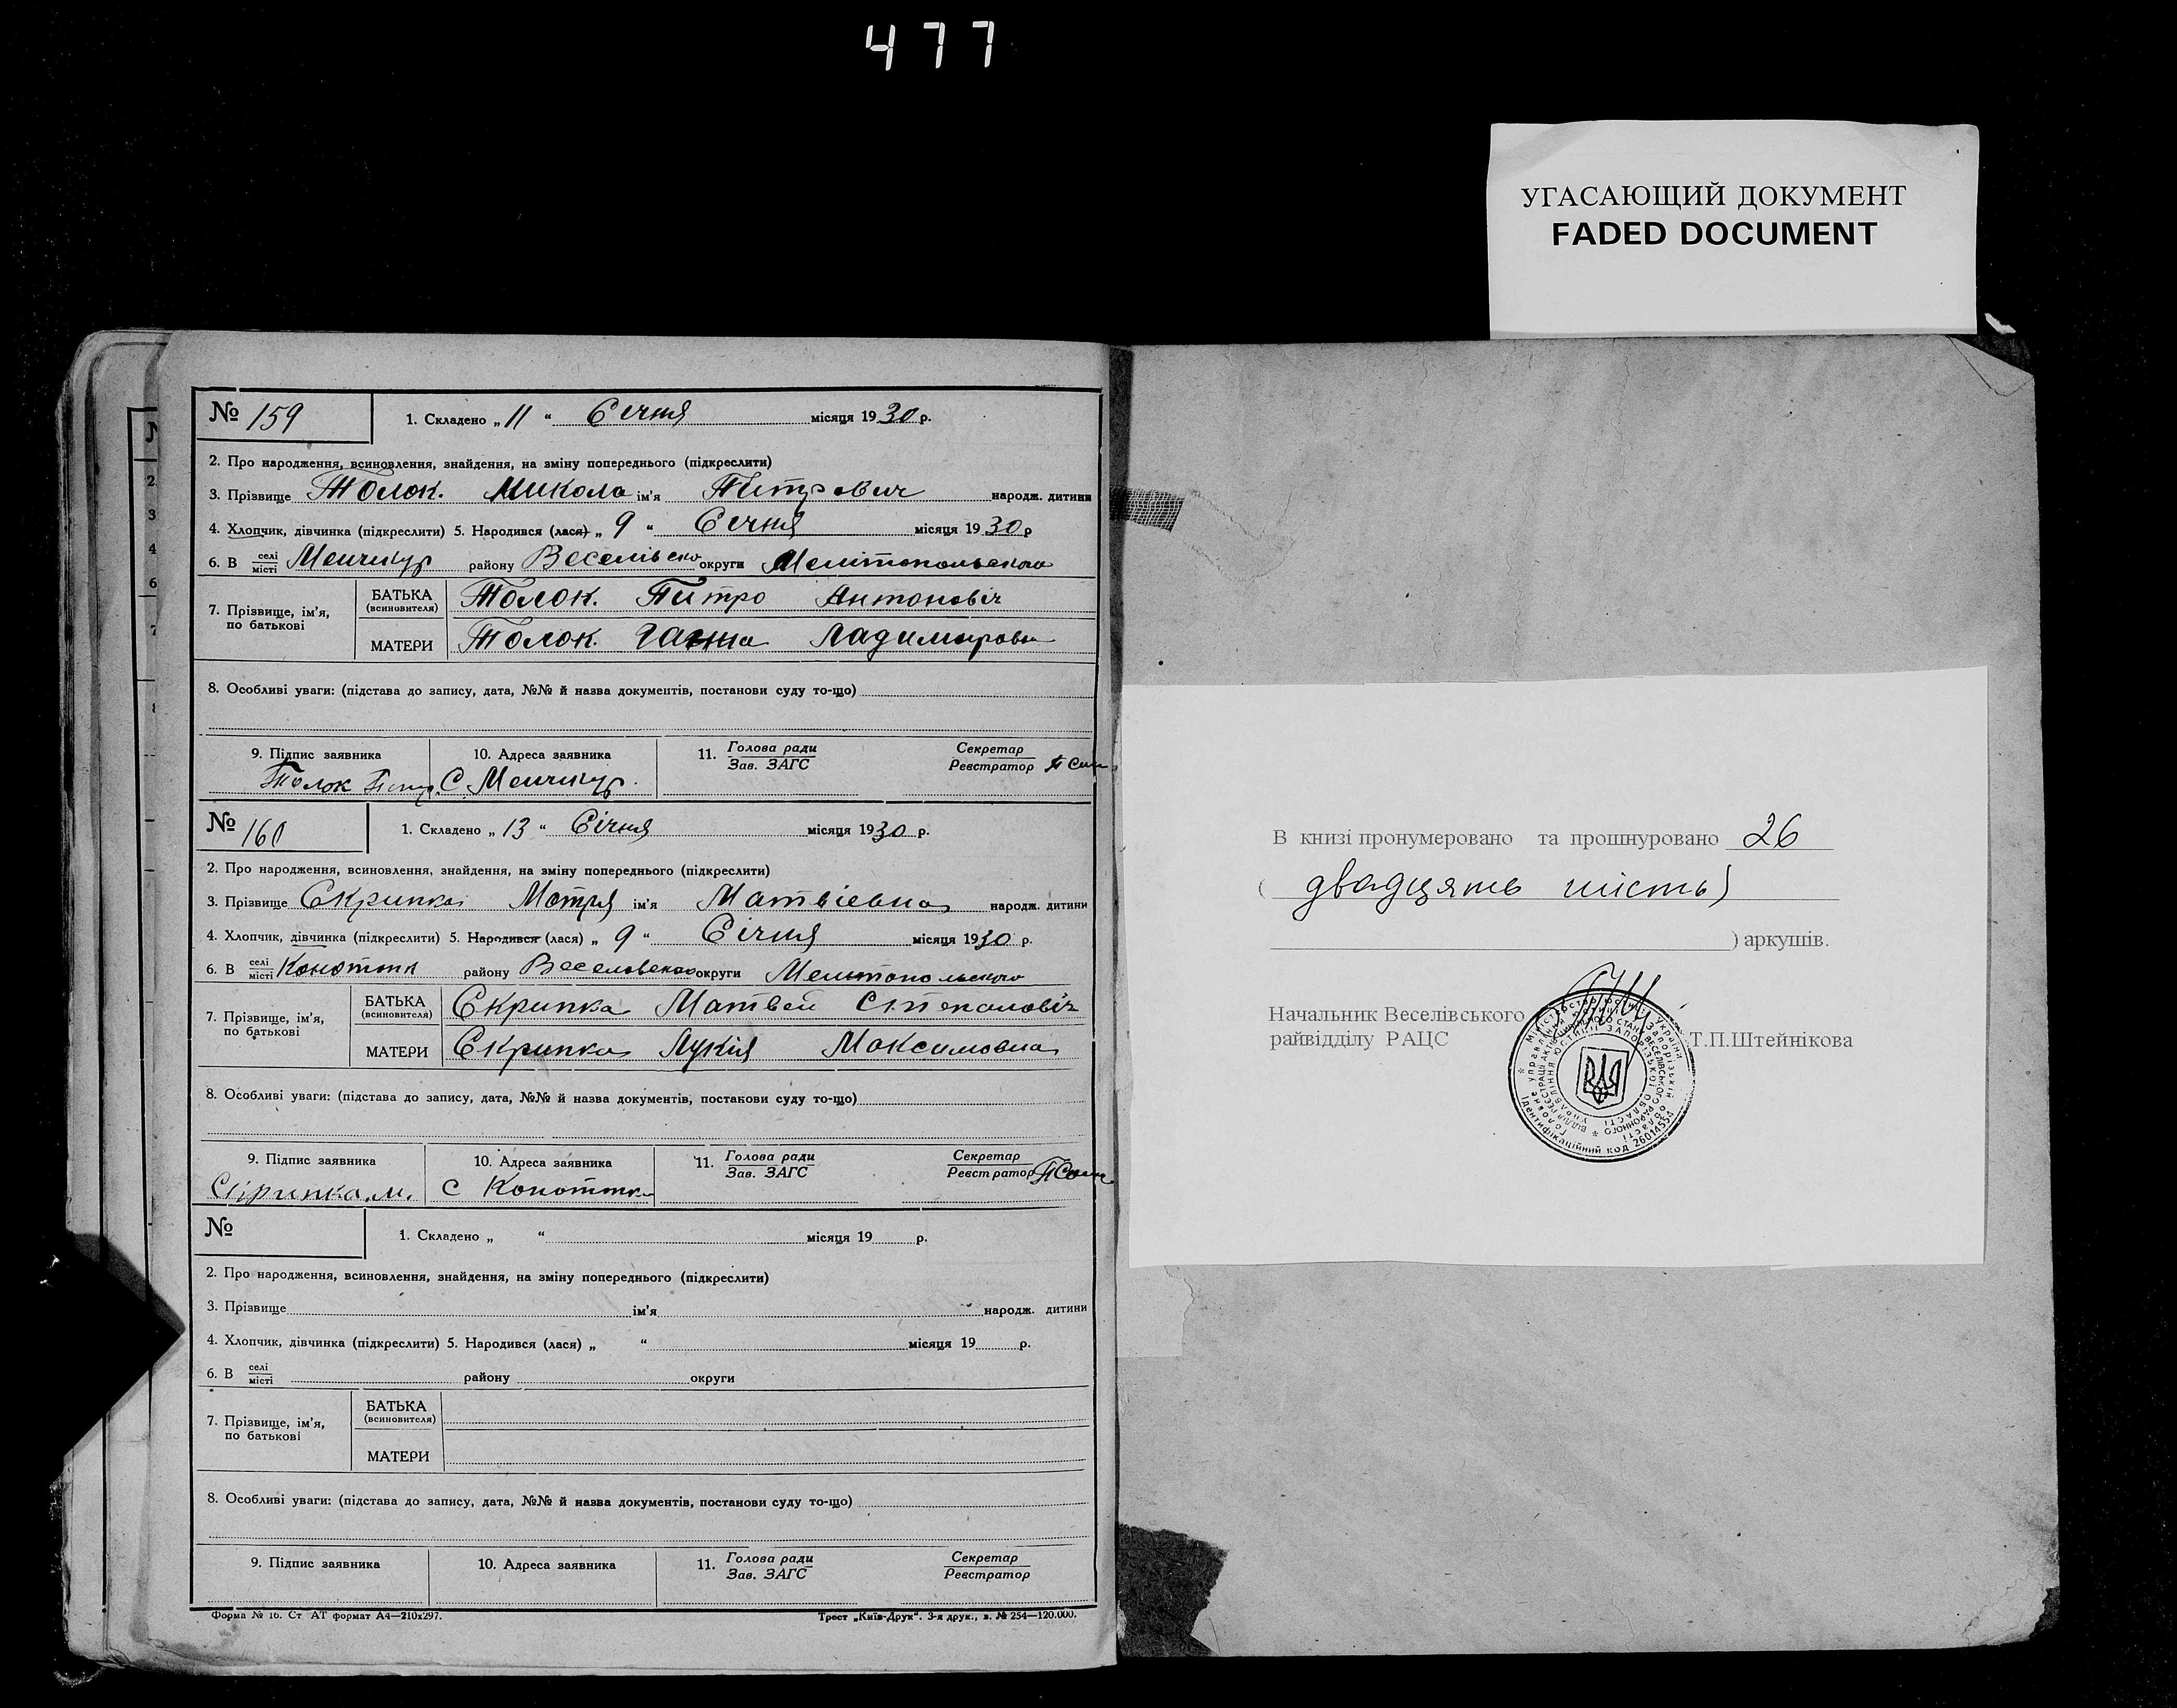 477
УГАСАЮЩИЙ ДОКУМЕНТ
FADED DOCUMENT
№ 159
1. Складено „ 11 “ Січня місяця 1930 р.
2. Про народження, всиновлення, знайдення, на зміну попереднього (підкреслити)
3. Прізвище Толок. Микола ім'я Питрович народж. дитини
4. Хлопчик, дівчинка (підкреслити) 5. Народився (лася) „ 9 “ Січня місяця 1930 р
6. В селі/місті Менчикур району Веселівсько округи Мелітопольского
7. Прізвище, ім'я, по батькові
БАТЬКА (всиновителя) Толок. Питро Антоновіч
МАТЕРИ Толок. Ганна Ладимировна
8. Особливі уваги: (підстава до запису, дата, №№ й назва документів, постанови суду то-що)
9. Підпис заявника
10. Адреса заявника
11. Голова ради / Зав. ЗАГС
Секретар / Реєстратор
Толок Петр. С. Менчикур.
№ 160
1. Складено „ 13 “ Січня місяця 1930 р.
2. Про народження, всиновлення, знайдення, на зміну попереднього (підкреслити)
3. Прізвище Скрипка Мотря ім'я Матвієвна народж. дитини
4. Хлопчик, дівчинка (підкреслити) 5. Народився (лася) „ 9 “ Січня місяця 1930 р.
6. В селі/місті Конотопк району Веселовского округи Мелитопольского
7. Прізвище, ім'я, по батькові
БАТЬКА (всиновителя) Скрипка Матвей Степановіч
МАТЕРИ Скрипка Лукія Максимовна
8. Особливі уваги: (підстава до запису, дата, №№ й назва документів, постанови суду то-що)
9. Підпис заявника
10. Адреса заявника
11. Голова ради / Зав. ЗАГС
Секретар / Реєстратор
Скрипка. М. с
№
1. Складено „ “ місяця 19 р.
2. Про народження, всиновлення, знайдення, на зміну попереднього (підкреслити)
3. Прізвище ім'я народж. дитини
4. Хлопчик, дівчинка (підкреслити) 5. Народився (лася) „ “ місяця 19 р.
6. В селі/місті району округи
7. Прізвище, ім'я, по батькові
БАТЬКА (всиновителя)
МАТЕРИ
8. Особливі уваги: (підстава до запису, дата, №№ й назва документів, постанови суду то-що)
9. Підпис заявника
10. Адреса заявника
11. Голова ради / Зав. ЗАГС
Секретар / Реєстратор
Форма № 16. Ст АТ формат А4—210х297.
Трест „Київ-Друк“. 3-я друк., з. № 254—120.000.
В книзі пронумеровано та прошнуровано 26
( двадцять шість)
) аркушів.
Начальник Веселівського
райвідділу РАЦС
Т.П.Штейнікова
Міністерство юстиції України
Ідентифікаційний код 26014554